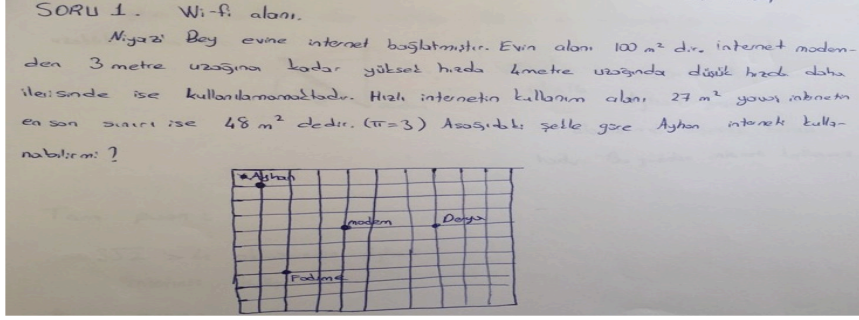 SORU 1. Wi-fi alanı.
Niyazi Bey evine internet bağlatmıştır. Evin alanı 100 m² dir. internet modem-
den 3 metre uzağına kadar yüksek hızda 4metre uzağında düşük hızda daha
ilerisinde ise kullanılamamaktadır. Hızlı internetin kullanım alanı 27 m² yavaş internetin
en son sınırı ise 48 m² dedir. (π=3) Aşağıdaki şekle göre Ayhan internet kulla-
nabilir mi ?
Ayhan
modem
Derya
Fadime